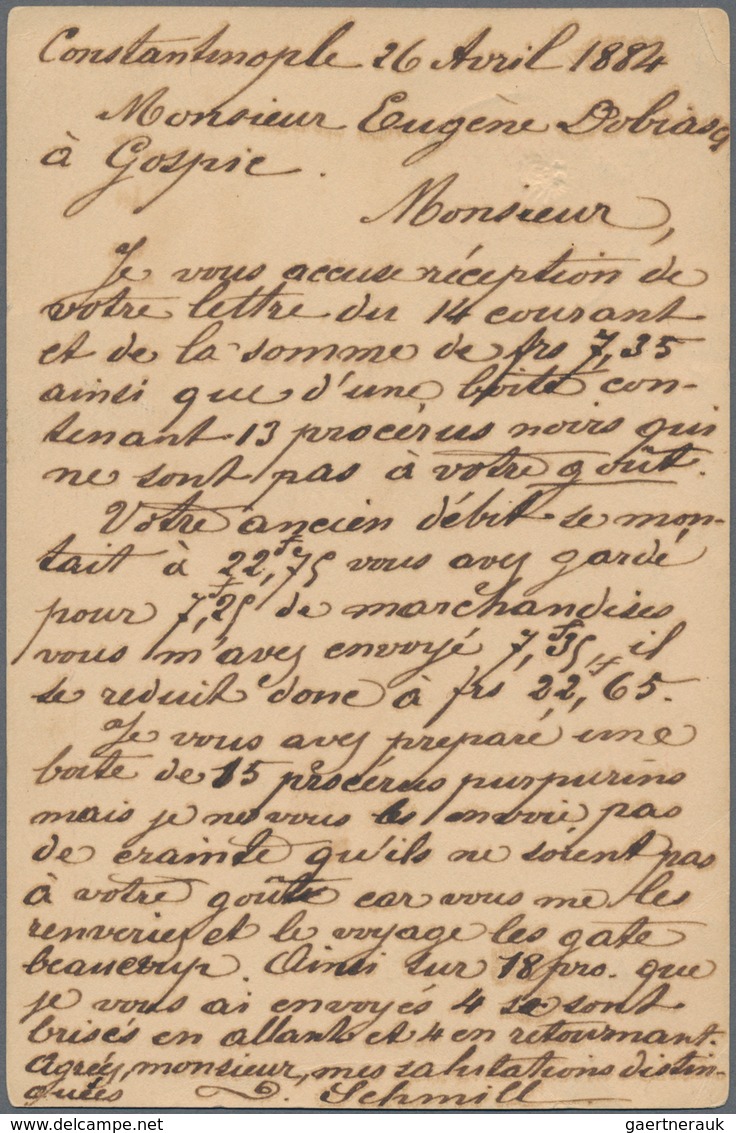 Constantinople 26 Avril 1884
Monsieur Eugène Dobiasq
à Gospic.
Monsieur,
Je vous accuse réception de
votre lettre du 14 courant
et de la somme de frs 7,35
ainsi que d'une boite con-
tenant 13 procérus noirs qui
ne sont pas à votre goût.
Votre ancien débit se mon-
tait à 22,f75 vous avez gardé
pour 7,f25 de marchandises
vous m'avez envoyé 7,f35, il
se reduit donc à frs 22,f65.
Je vous avez preparé une
boite de 15 procérus purpurins
mais je ne vous les envoie pas
de crainte qu'ils ne soient pas
à votre goûte car vous me les
renveriez et le voyage les gate
beaucoup. Ainsi sur 18 pro. que
je vous ai envoyés 4 se sont
brisés en allant et 4 en retournant.
Agréez, monsieur, mes salutations distin-
guées D. Schmill
gaertnerauk